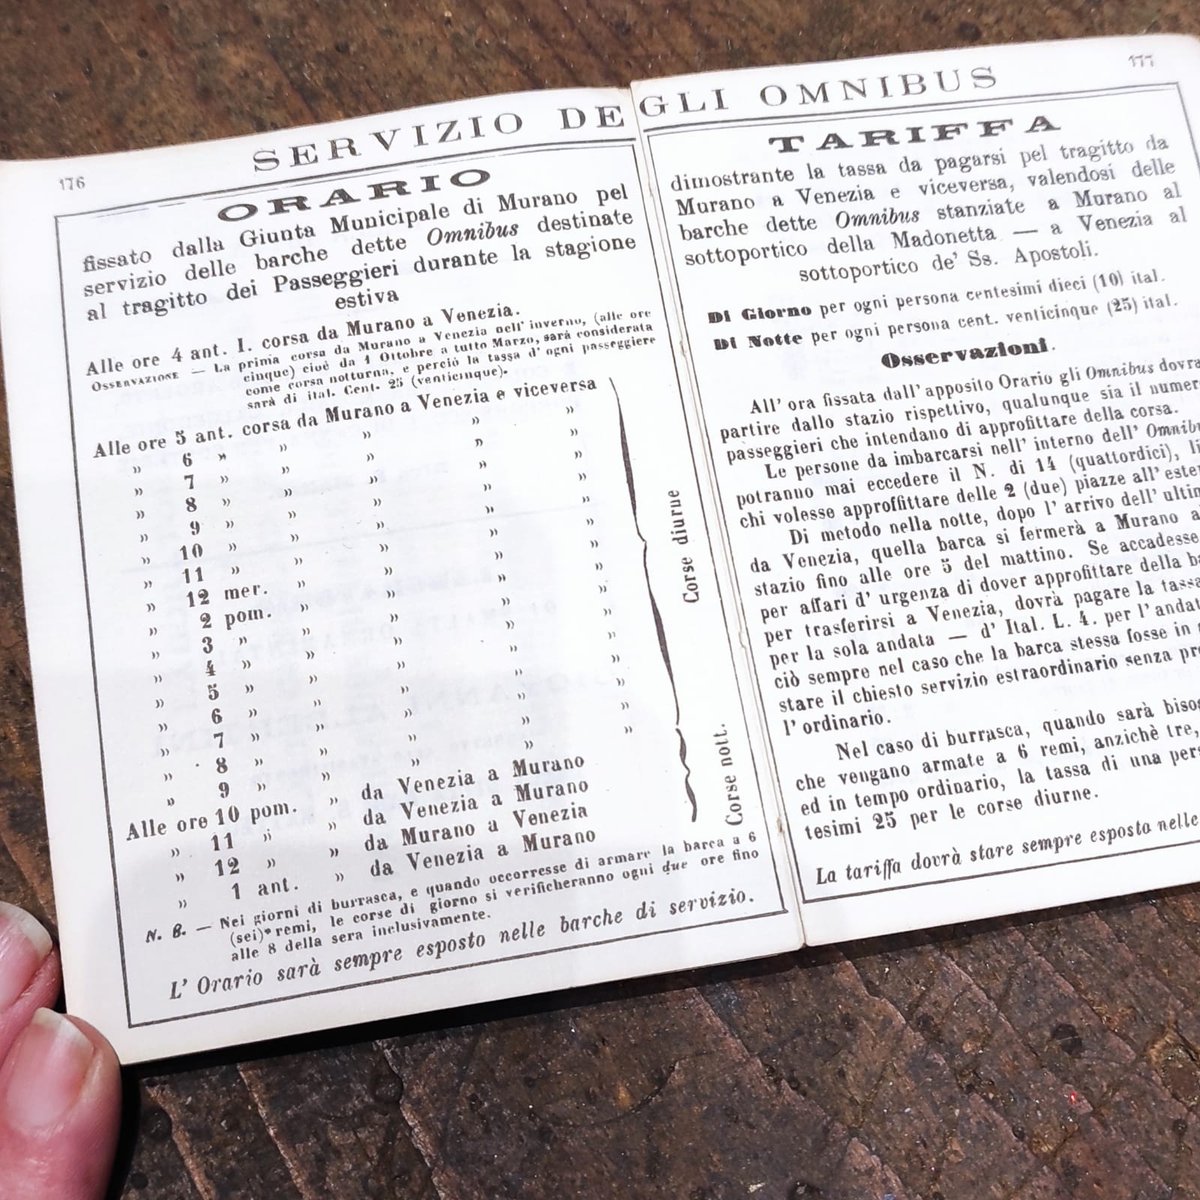 SERVIZIO DEGLI OMNIBUS
176
ORARIO
fissato dalla Giunta Municipale di Murano pel
servizio delle barche dette Omnibus destinate
al tragitto dei Passeggieri durante la stagione
estiva
Alle ore 4 ant. I. corsa da Murano a Venezia.
OSSERVAZIONE — La prima corsa da Murano a Venezia nell' inverno, (alle ore
cinque) cioè da 1 Ottobre a tutto Marzo, sarà considerata
come corsa notturna, e perciò la tassa d' ogni passeggiere
sarà di ital. Cent. 25 (venticinque).
Alle ore 5 ant. corsa da Murano a Venezia e viceversa
" 6 " " " " "
" 7 " " " " "
" 8 " " " " "
" 9 " " " " "
" 10 " " " " "
" 11 " " " " "
" 12 mer. " " " "
" 2 pom. " " " "
" 3 " " " " "
" 4 " " " " "
" 5 " " " " "
" 6 " " " " "
" 7 " " " " "
" 8 " " " " "
" 9 " " " " "
Corse diurne
Alle ore 10 pom. " da Venezia a Murano
" 11 " " da Venezia a Murano
" 12 " " da Murano a Venezia
" 1 ant. " da Venezia a Murano
Corse nott.
N. B. — Nei giorni di burrasca, e quando occorresse di armare la barca a 6
(sei) remi, le corse di giorno si verificheranno ogni due ore fino
alle 8 della sera inclusivamente.
L' Orario sarà sempre esposto nelle barche di servizio.
177
TARIFFA
dimostrante la tassa da pagarsi pel tragitto da
Murano a Venezia e viceversa, valendosi delle
barche dette Omnibus stanziate a Murano al
sottoportico della Madonetta — a Venezia al
sottoportico de' Ss. Apostoli.
Di Giorno per ogni persona centesimi dieci (10) ital.
Di Notte per ogni persona cent. venticinque (25) ital.
Osservazioni.
All' ora fissata dall' apposito Orario gli Omnibus dovra
partire dallo stazio rispettivo, qualunque sia il numer
passeggieri che intendano di approfittare della corsa.
Le persone da imbarcarsi nell' interno dell' Omnibu
potranno mai eccedere il N. di 14 (quattordici), li
chi volesse approffittare delle 2 (due) piazze all' este
Di metodo nella notte, dopo l' arrivo dell' ultim
da Venezia, quella barca si fermerà a Murano a
stazio fino alle ore 5 del mattino. Se accadesse
per affari d' urgenza di dover approfittare della ba
per trasferirsi a Venezia, dovrà pagare la tassa
per la sola andata — d' Ital. L. 4. per l' andat
ciò sempre nel caso che la barca stessa fosse in
stare il chiesto servizio estraordinario senza pre
l' ordinario.
Nel caso di burrasca, quando sarà biso
che vengano armate a 6 remi, anzichè tre,
ed in tempo ordinario, la tassa di una pers
tesimi 25 per le corse diurne.
La tariffa dovrà stare sempre esposto nelle